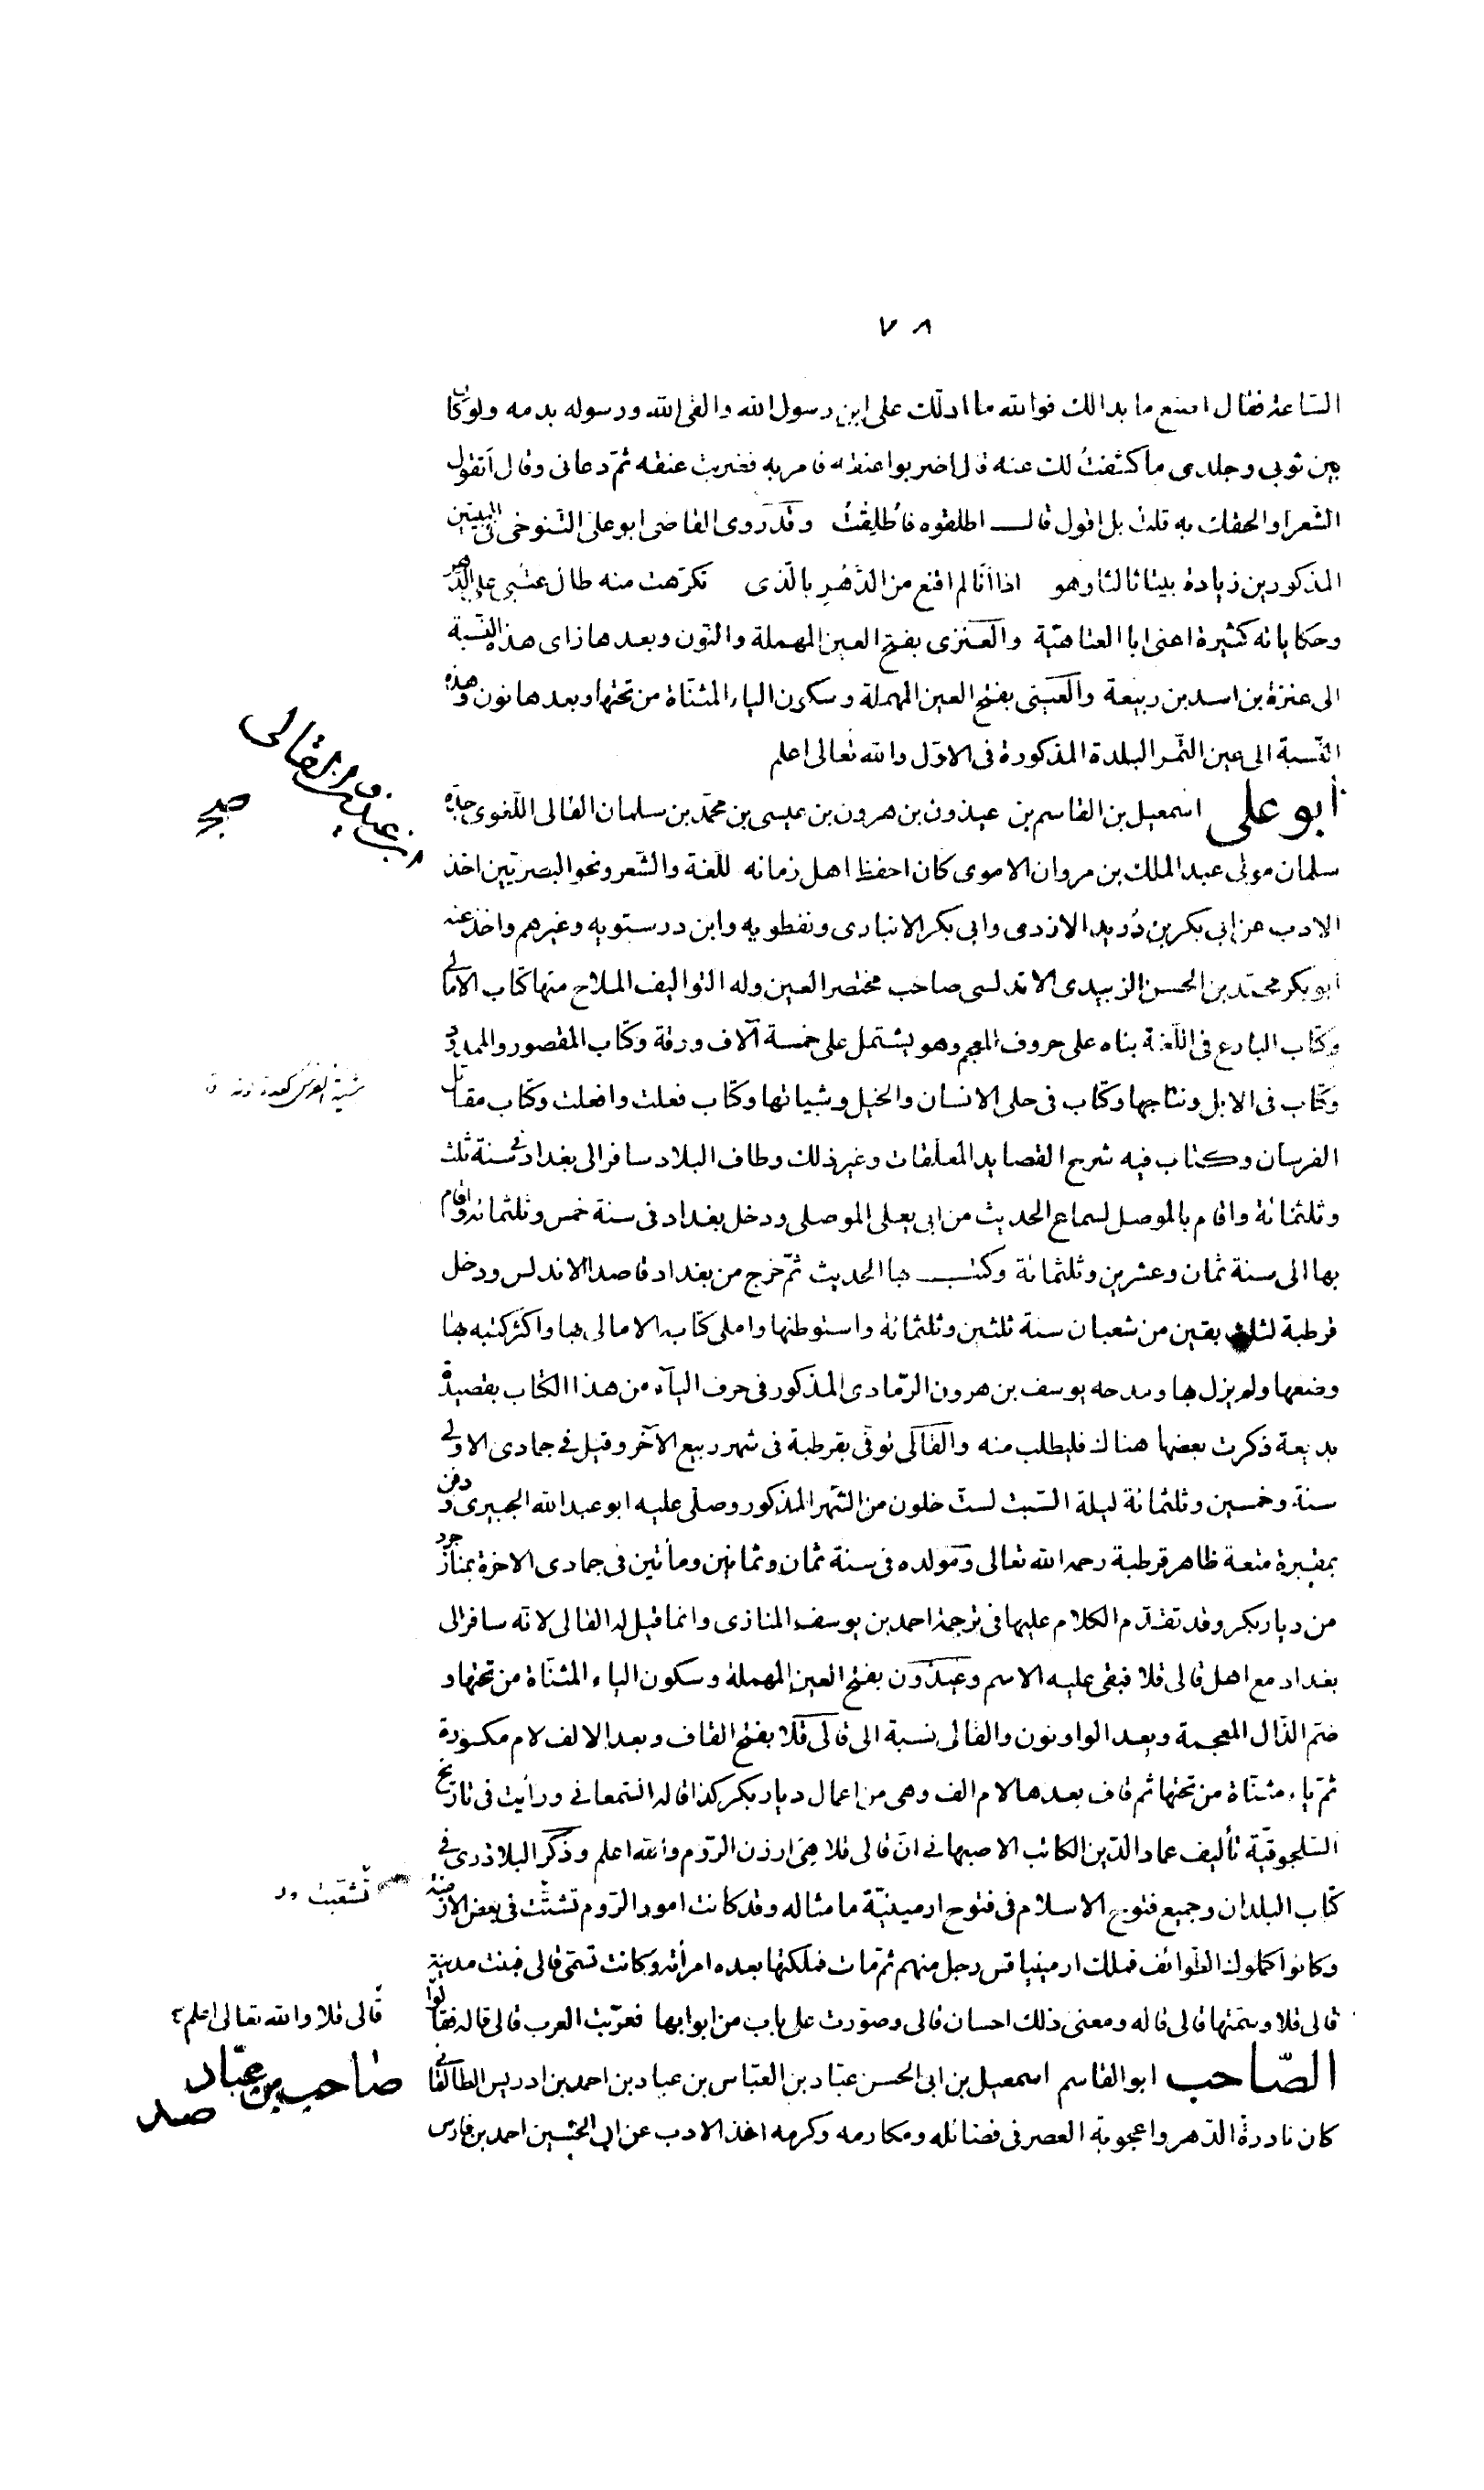 ٧٨
الساعة فقال اصنع ما بدا لك فوالله ما ادلك على ابن رسول الله والقى الله ورسوله بدمه ولو كان
بين ثوبى وجلدى ما كشفتُ لك عنه قال اضربوا عنقه فامر به فضربت عنقه ثمّ دعانى وقال أتقول
الشعر او الحقك به قلت بل اقول قال اطلقوه فاُطلِقتُ وقد روى القاضى ابو على التنوخى فى البيتين
المذكورين زيادة بيتا ثالثا وهو اذا أنا لم اقنع من الدَّهْرِ بالّذى تكرّهت منه طال عتبى على الدّهر
وحكاياته كثيرة اعنى ابا العتاهيّة والعنزى بفتح العين المهملة والنّون وبعدها زاى هذه النّسبة
الى عنزة بن اسد بن ربيعة والعينى بفتح العين المهملة وسكون الياء المثنّاة من تحتها وبعدها نون وهذه
النّسبة الى عين التّمر البلدة المذكورة فى الاوّل والله تعالى اعلم
أبو على اسمعيل بن القاسم بن عيذون بن هرون بن عيسى بن محمّد بن سلمان القالى اللّغوى جدّه
سلمان مولى عبد الملك بن مروان الاموى كان احفظ اهل زمانه للّغة والشّعر ونحو البصريّين اخذ
الادب عن ابى بكر بن دُريد الازدى وابى بكر الانبارى ونفطويه وابن درستويه وغيرهم واخذ عنه
ابو بكر محمّد بن الحسن الزبيدى الاندلسى صاحب مختصر العين وله التواليف الملاح منها كتاب الامالى
وكتاب البارع فى اللّغة بناه على حروف المعجم وهو يشتمل على خمسة آلاف ورقة وكتاب المقصور والممدود
وكتاب فى الابل ونتاجها وكتاب فى حلى الانسان والخيل وشياتها وكتاب فعلت وافعلت وكتاب مقاتل
الفرسان وكتاب فيه شرح القصايد المعلّقات وغير ذلك وطاف البلاد سافر الى بغداد فى سنة ثلث
وثلثمائة واقام بالموصل لسماع الحديث من ابى يعلى الموصلى ودخل بغداد فى سنة خمس وثلثمائة واقام
بها الى سنة ثمان وعشرين وثلثمائة وكتب بها الحديث ثمّ خرج من بغداد قاصدا الاندلس ودخل
قرطبة لثلث بقين من شعبان سنة ثلثين وثلثمائة واستوطنها واملى كتابه الامالى بها واكثر كتبه بها
وضعها ولم يزل بها ومدحه يوسف بن هرون الرّمادى المذكور فى حرف اليآء من هذا الكتاب بقصيدة
بديعة ذكرت بعضها هناك فليطلب منه والقالى توفّى بقرطبة فى شهر ربيع الآخر وقيل فى جمادى الاولى
سنة وخمسين وثلثمائة ليلة السّبت لستّ خلون من الشّهر المذكور وصلّى عليه ابو عبد الله الجبيرى ودفن
بمقبرة متعة ظاهر قرطبة رحمه الله تعالى ومولده فى سنة ثمان وثمانين ومأتين فى جمادى الاخرة بمنازجرد
من ديار بكر وقد تقدّم الكلام عليها فى ترجمة احمد بن يوسف المنازى وانما قيل له القالى لانّه سافر الى
بغداد مع اهل قالى قلا فبقى عليه الاسم وعيذون بفتح العين المهملة وسكون الياء المثنّاة من تحتها و
ضم الذّال المعجمة وبعد الواو نون والقالى نسبة الى قالى قلا بفتح القاف وبعد الالف لام مكسورة
ثمّ ياء مثنّاة من تحتها ثم قاف بعدها لام الف وهى من اعمال ديار بكر كذا قاله السّمعانى ورأيت فى تاريخ
السّلجوقيّة تأليف عماد الدّين الكاتب الاصبهانى انّ قالى قلا هى ارزن الرّوم والله اعلم وذكر البلاذرى فى
كتاب البلدان وجميع فتوح الاسلام فى فتوح ارمينيّة ما مثاله وقد كانت امور الرّوم تشتّت فى بعض الازمنة
وكانوا كملوك الطّوائف فملك ارمينياقس رجل منهم ثمّ مات فملكتها بعده امرأته وكانت تسمّى قالى فبنت مدينة
قالى قلا وسمّتها قالى قاله ومعنى ذلك احسان قالى وصوّرت على باب من ابوابها فعرّبت العرب قالى قاله فقالوا
الصّاحب ابو القاسم اسمعيل بن ابى الحسن عبّاد بن العبّاس بن عباد بن احمد بن ادريس الطالقانى
كان نادرة الدّهر واعجوبة العصر فى فضائله ومكارمه وكرمه اخذ الادب عن ابى الحسين احمد بن فارس
ابن عيذون القالى
صح
تشعّبت
قالى قلا والله تعالى اعلم
صاحب بن عبّاد